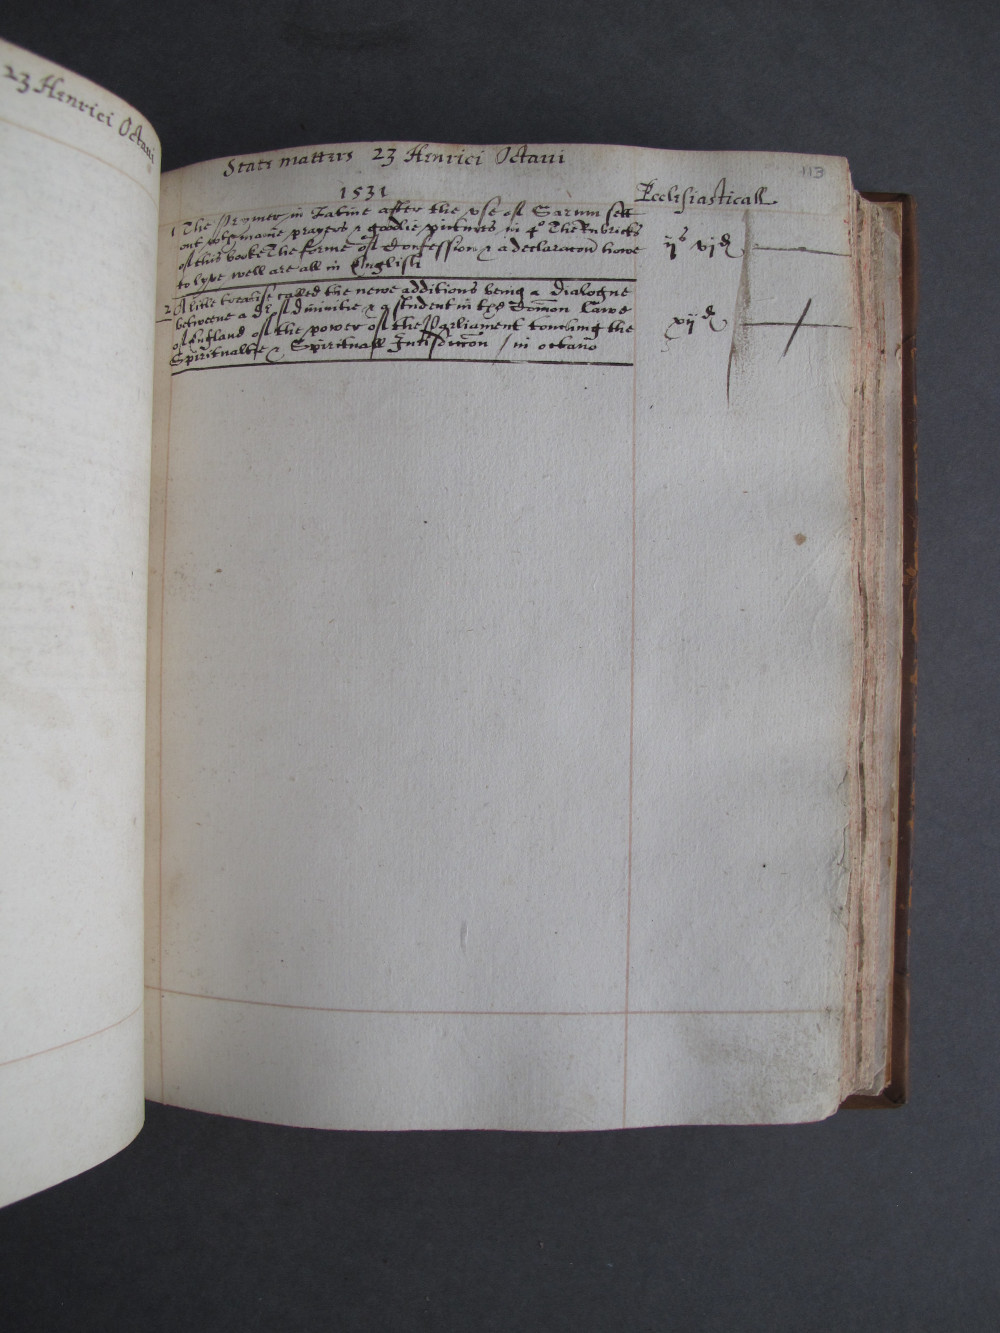 23 Henrici Octaui
State matters 23 Henrici Octaui
113
1531
Ecclesiasticall
1 The Prymer in Latine after the vse of Sarum sett
out wth manie prayers & goodlie pictures in 4o The Rubricks
of this booke The forme of Confession & a declaracon howe
to lyve well are all in English
ijs vjd
2 A litle treatise called the newe additions being a dialogue
betweene a dr of diuinitie & a student in the Common Lawe
of England of the power of the Parliament touching the
Spiritualtie & Spirituall Jurisdiccon / in octauo
xijd